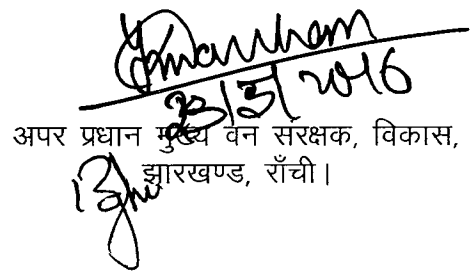 23/3/2016
अपर प्रधान मुख्य वन संरक्षक, विकास,
झारखण्ड, राँची।